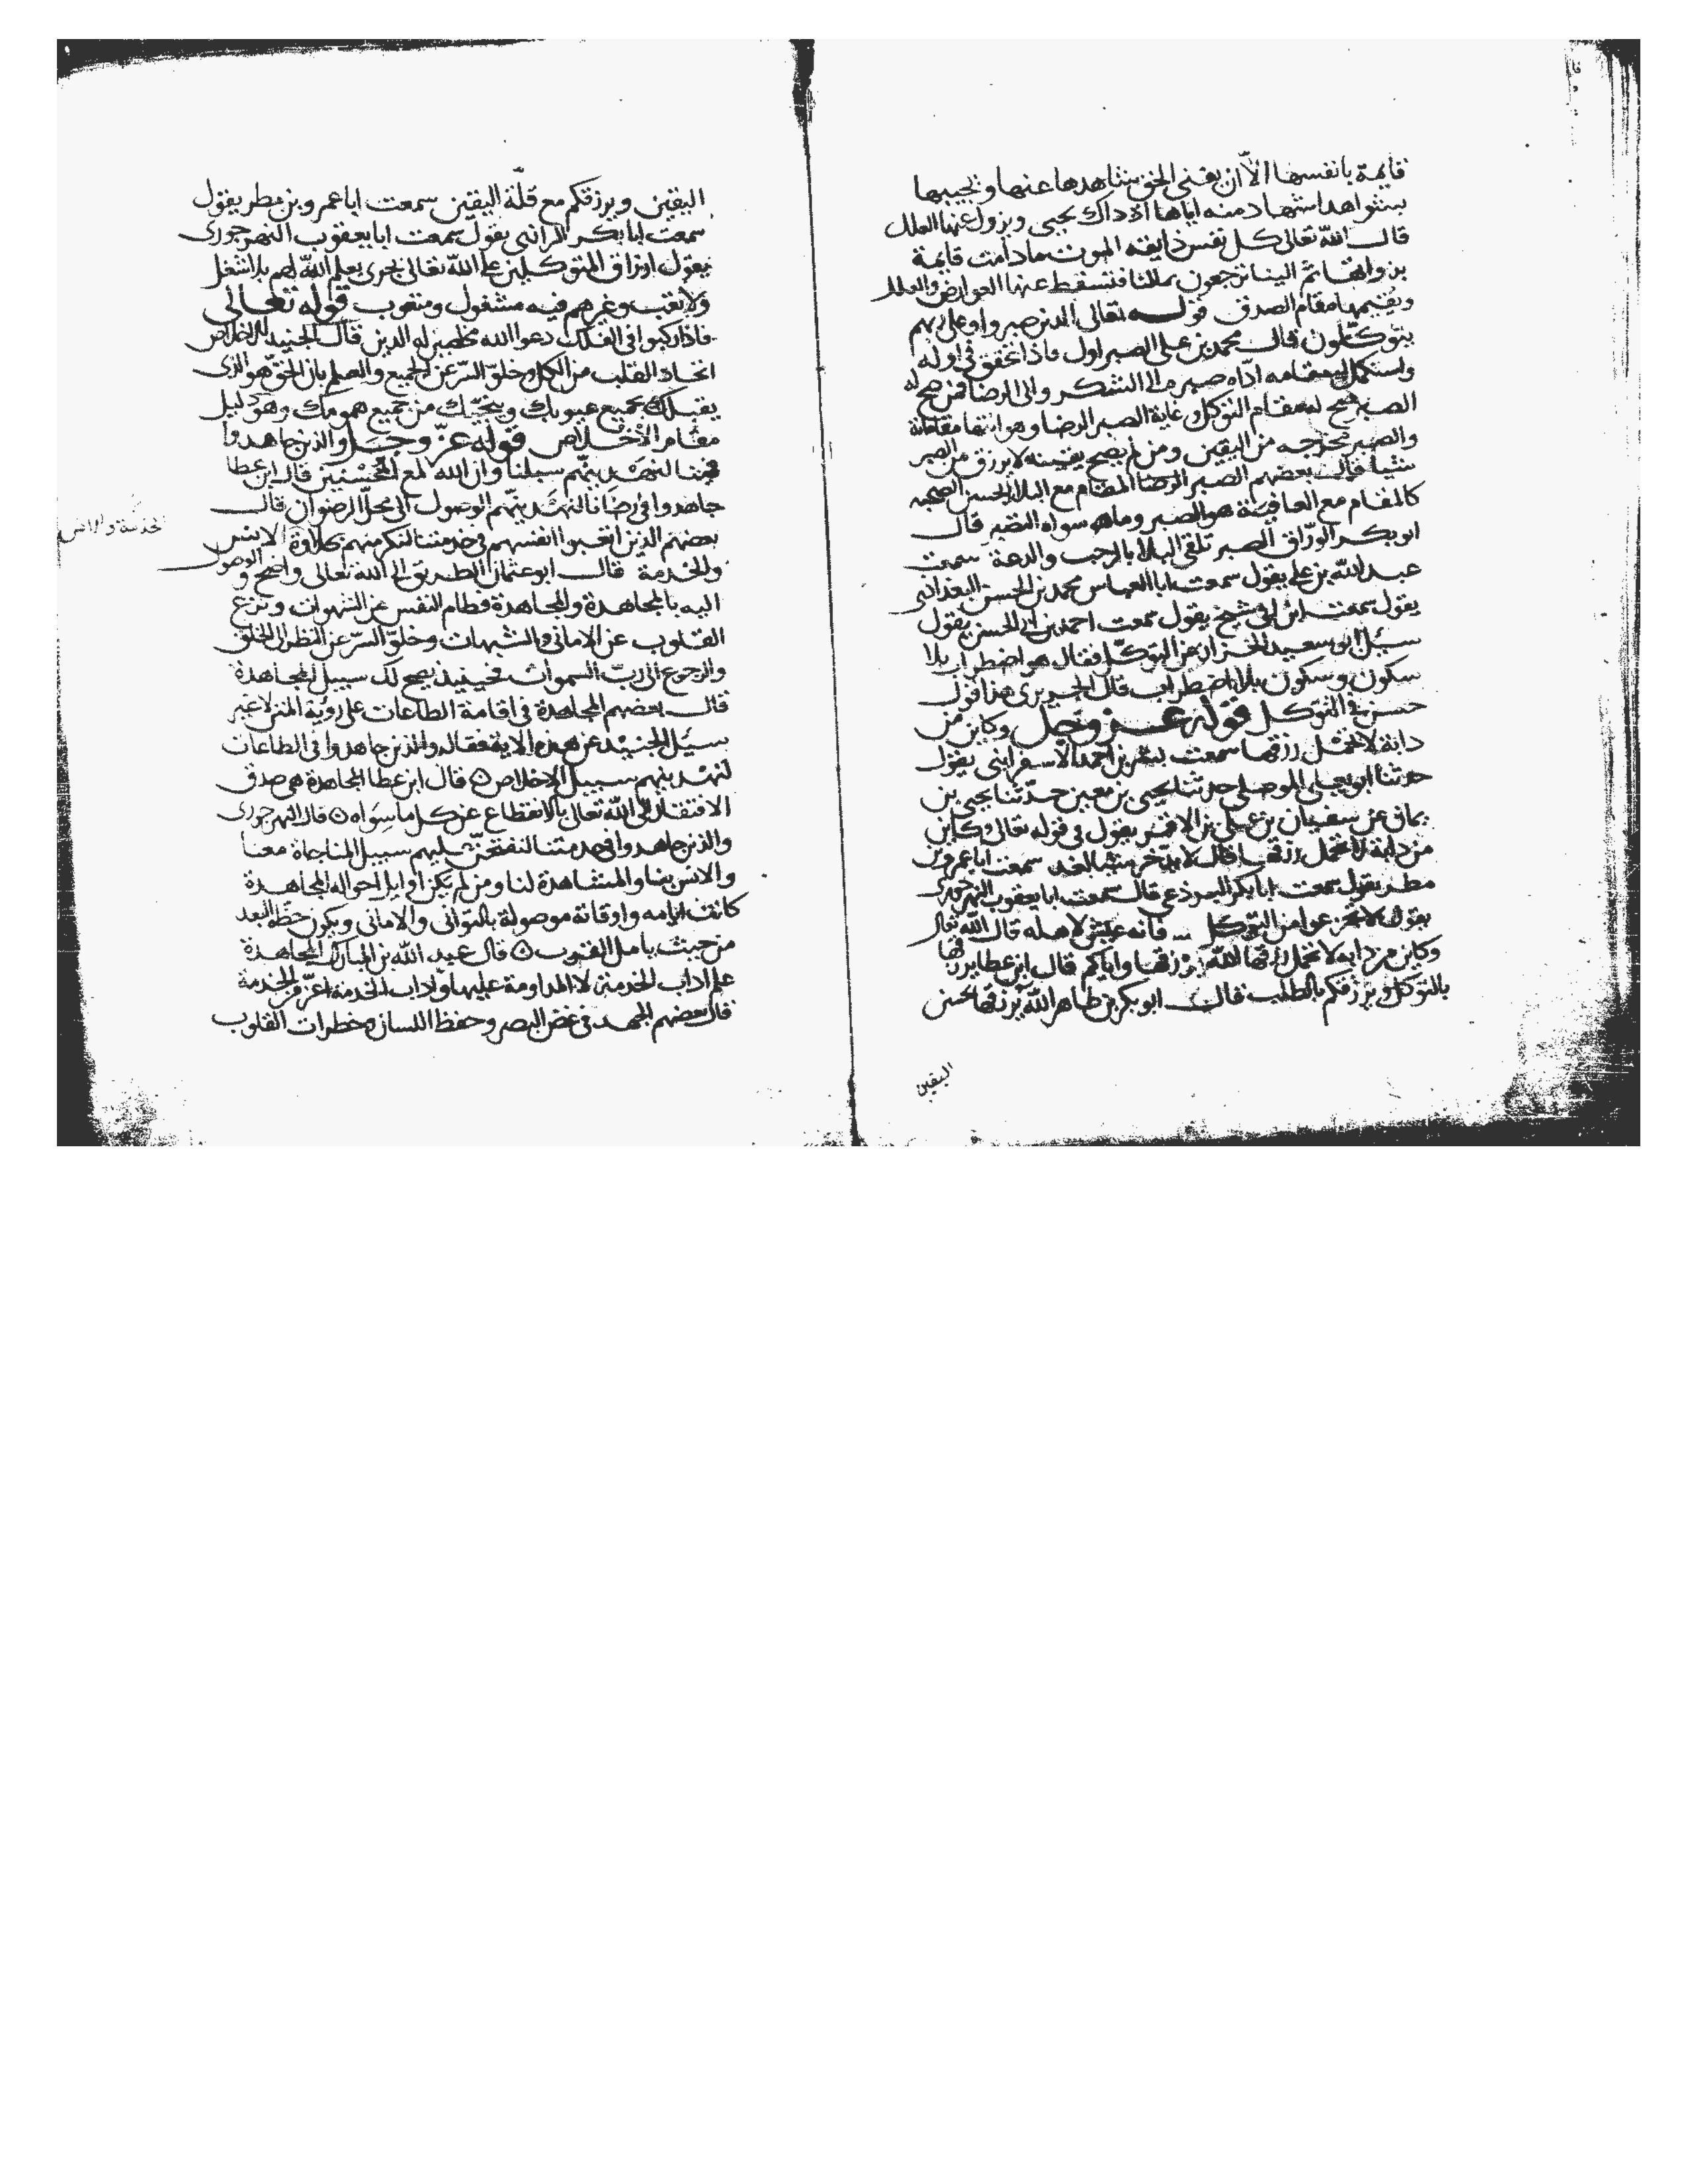 قايمة بانفسها الا ان يفنى الحق مشاهدها عنها ويجيبها
بشواهد اشهاد منه اياها اذ ذاك يحيى ويزول عنها العلل
قال الله تعالى كل نفس ذايقة الموت ما دامت قايمة
ثم الينا ترجعون فتسقط عنها العوارض والعلل
ويقيمها مقام الصدق قوله تعالى الذين صبروا وعلى ربهم
يتوكلون قال محمد بن على الصبر اول فاذا تحقق في اوله
واستكمل مقامه اداه صبره الى الشكر والى الرضا فمن صح له
الصبر صح له مقام التوكل وغاية الصبر الرضا وهو
والصبر مخرجه من اليقين ومن لم يصح يقينه لا يرزق من الصبر
شيا قال بعضهم الصبر الرضا المقام مع البلا بحسن الصحبه
كالمقام مع العافية هو الصبر وما سواه التصبر قال
ابو بكر الوراق الصبر تلقى البلا بالرحب والدعة سمعت
عبد الله بن على يقول سمعت ابا العباس محمد بن الحسن البغدادى
يقول سمعت ابن ابى شيخ يقول سمعت احمد بن ابى الحسن يقول
سيل ابو سعيد الخزاز عن التوكل فقال هو اضطراب بلا
سكون وسكون بلا اضطراب قال الجريرى هذا قول
حسن في التوكل قوله عز وجل وكاين من
دابة لا تحمل رزقها سمعت بشر بن احمد الاسفراينى يقول
حدثنا ابو يعلى الموصلى حدثنا يحيى بن معين حدثنا يحيى بن
يمان عن سفيان بن على بن الاقمر يقول في قوله تعالى وكاين
من دابة لا تحمل رزقها قال لا يدخر شيا لغد سمعت ابا عمرو بن
مطر يقول سمعت ابا بكر البرذعى قال سمعت ابا يعقوب النهرجورى
يقول لا تجزعوا من التوكل فانه عيش لاهله قال الله تعالى
وكاين من دابه لا تحمل رزقها الله يرزقها واياكم قال ابن عطا يرزقها
بالتوكل ويرزقكم بالطلب قال ابو بكر بن طاهر الله يرزقها بحسن
اليقين
اليقين ويرزقكم مع قلة اليقين سمعت ابا عمرو بن مطر يقول
سمعت ابا بكر الرازى يقول سمعت ابا يعقوب النهرجورى
يقول ارزاق المتوكلين على الله تعالى تجرى بعلم الله لهم بلا شغل
ولا تعب وغيرهم فيه مشغول ومتعوب قوله تعالى
فاذا ركبوا في الفلك دعوا الله مخلصين له الدين قال الجنيد الاخلاص
اتخاذ القلب من الكل وخلو السر عن الجميع والعلم بان الحق هو الذى
يقبلك بجميع عيوبك وينجيك من جميع همومك وهو دليل
مقام الاخلاص قوله عز وجل والذين جاهدوا
فينا لنهدينهم سبلنا وان الله لمع المحسنين قال ابن عطا
جاهدوا في رضانا لنهدينهم الوصول الى محل الرضوان قال
بعضهم الذين اتعبوا انفسهم في خدمتنا لنكرمنهم بحلاوة الانس
والخدمة قال ابو عثمان الطريق الى الله تعالى واضح والوصول
اليه بالمجاهدة والمجاهدة فطام النفس عن الشهوات ونزع
القلوب عن الامانى والشبهات وخلو السر عن النظر الى الخلق
والرجوع الى رب السموات فحينيذ يصح لك سبيل المجاهدة
قال بعضهم المجاهدة في اقامة الطاعات على رؤية المنن لا غير
سيل الجنيد عن هذه الاية فقال والذين جاهدوا في الطاعات
لنهدينهم سبيل الاخلاص ه قال ابن عطا المجاهدة هى صدق
الافتقار الى الله تعالى بالانقطاع عن كل ما سواه ه قال النهرجورى
والذين جاهدوا في خدمتنا لنفتحن عليهم سبيل المناجاة معنا
والانس بنا والمشاهدة لنا ومن لم يكن اوايل احواله المجاهدة
كانت ايامه واوقاته موصولة بالتوانى والامانى ويكون حظه البعد
من حيث يامل القرب ه قال عبد الله بن المبارك المجاهدة
علم اداب الخدمة لا المداومة عليها واداب الخدمة اعز من الخدمة
قال بعضهم الجهد في غض البصر وحفظ اللسان وخطرات القلوب
الخدمة والانس